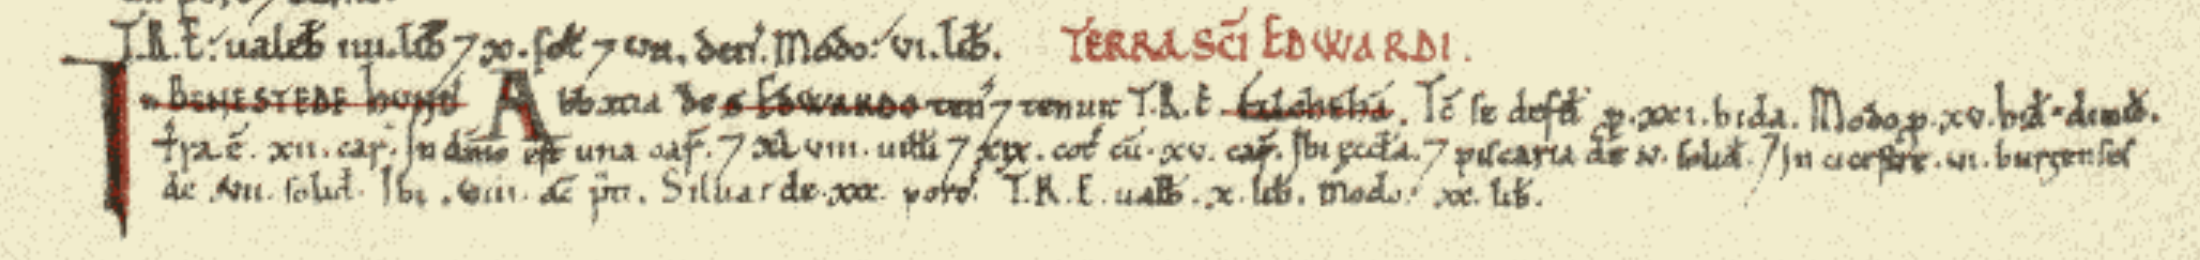 T.R.E. ualeb iiii. lib 7 x. sol 7 vii. den. Modo. vi. lib. TERRA SCI EDWARDI.
In BENESTEDE HUND Abbatia de S EDWARDO ten 7 tenuit T.R.E. Felcheham. Tc se defd p. xxi. hida. Modo p. xv. hid 7 dimid.
Tra. e. xii. car. In dnio est una car. 7 xlviii. uilli 7 xix. cot cu. xv. car. Ibi eccla. 7 piscaria de v. solid. 7 In cicestre. vi. burgenses
de vii. solid. Ibi. viii. ac pti. Silua de. xxx. porc. T.R.E. ualb. x. lib. Modo. xx. lib.